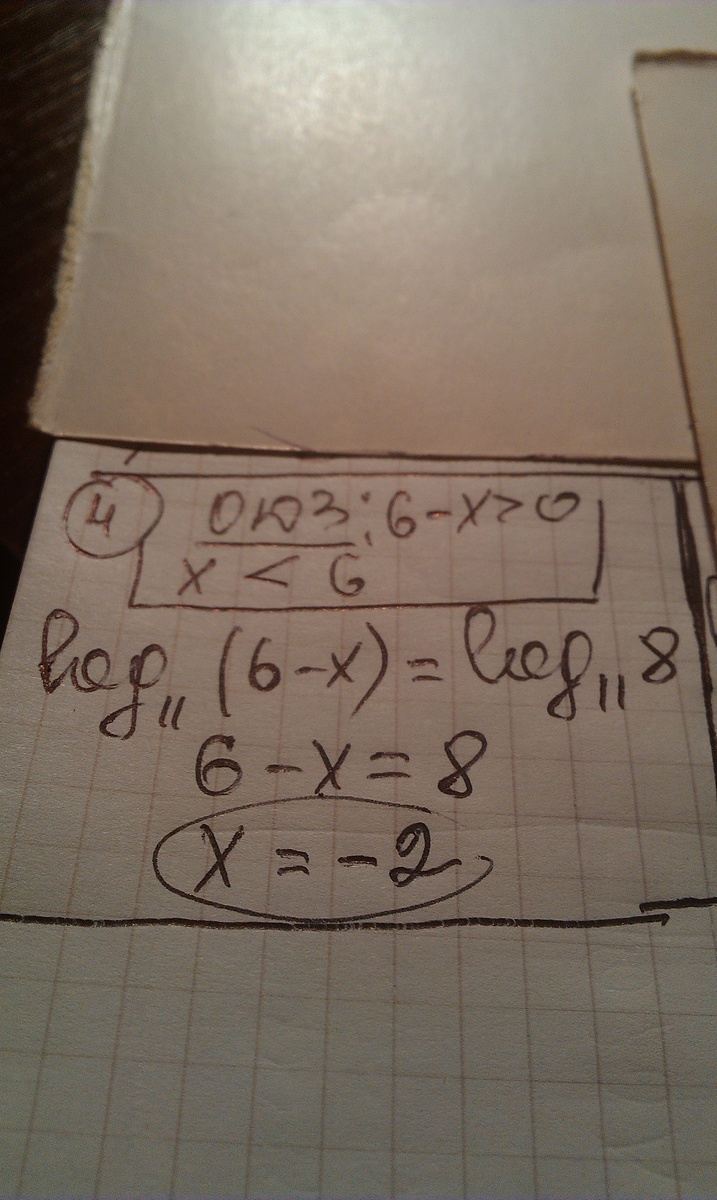 4 ОДЗ: 6-x>0
x < 6
log₁₁ (6-x) = log₁₁ 8
6-x=8
x = -2